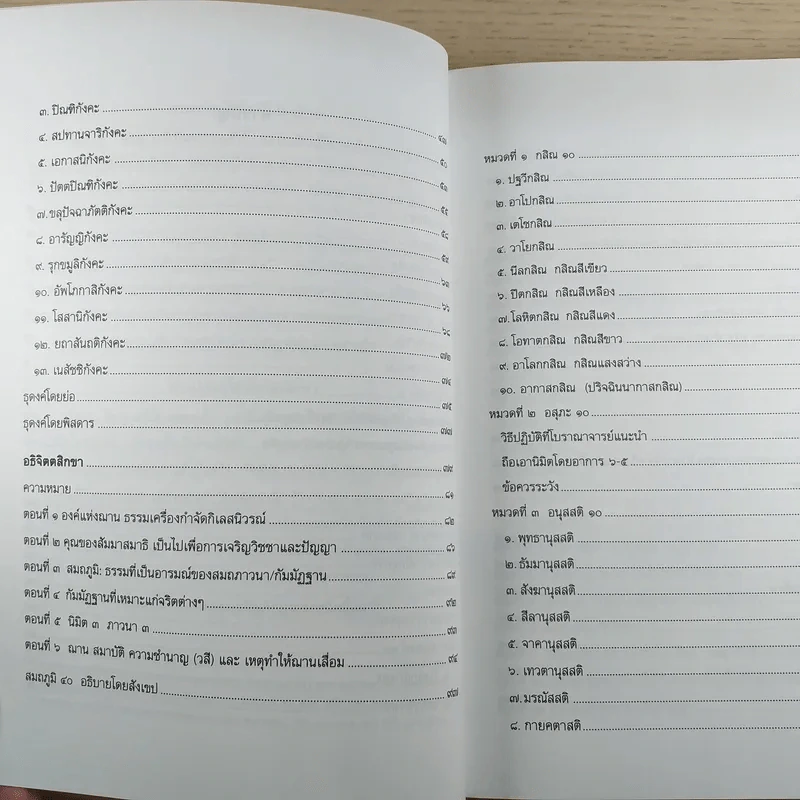 ๓. ปิณฑิกังคะ ๔๗
๔. สปทานจาริกังคะ ๕๐
๕. เอกาสนิกังคะ ๕๓
๖. ปัตตปิณฑิกังคะ ๕๕
๗. ขลุปัจฉาภัตติกังคะ ๕๘
๘. อารัญญิกังคะ ๕๙
๙. รุกขมูลิกังคะ ๖๓
๑๐. อัพโภกาสิกังคะ ๖๖
๑๑. โสสานิกังคะ ๖๘
๑๒. ยถาสันถติกังคะ ๗๒
๑๓. เนสัชชิกังคะ ๗๔
ธุดงค์โดยย่อ ๗๕
ธุดงค์โดยพิสดาร ๗๗
อธิจิตตสิกขา ๗๙
ความหมาย ๘๑
ตอนที่ ๑ องค์แห่งฌาน ธรรมเครื่องกำจัดกิเลสนิวรณ์ ๘๒
ตอนที่ ๒ คุณของสัมมาสมาธิ เป็นไปเพื่อการเจริญวิชชาและปัญญา ๘๖
ตอนที่ ๓ สมถภูมิ: ธรรมที่เป็นอารมณ์ของสมถภาวนา/กัมมัฏฐาน ๘๙
ตอนที่ ๔ กัมมัฏฐานที่เหมาะแก่จริตต่างๆ ๙๒
ตอนที่ ๕ นิมิต ๓ ภาวนา ๓ ๙๓
ตอนที่ ๖ ฌาน สมาบัติ ความชำนาญ (วสี) และ เหตุทำให้ฌานเสื่อม ๙๔
สมถภูมิ ๔๐ อธิบายโดยสังเขป ๙๗
หมวดที่ ๑ กสิณ ๑๐
๑. ปฐวีกสิณ
๒. อาโปกสิณ
๓. เตโชกสิณ
๔. วาโยกสิณ
๕. นีลกสิณ กสิณสีเขียว
๖. ปีตกสิณ กสิณสีเหลือง
๗. โลหิตกสิณ กสิณสีแดง
๘. โอทาตกสิณ กสิณสีขาว
๙. อาโลกกสิณ กสิณแสงสว่าง
๑๐. อากาสกสิณ (ปริจฉินนากาสกสิณ)
หมวดที่ ๒ อสุภะ ๑๐
วิธีปฏิบัติที่โบราณาจารย์แนะนำ
ถือเอานิมิตโดยอาการ ๖-๕
ข้อควรระวัง
หมวดที่ ๓ อนุสสติ ๑๐
๑. พุทธานุสสติ
๒. ธัมมานุสสติ
๓. สังฆานุสสติ
๔. สีลานุสสติ
๕. จาคานุสสติ
๖. เทวตานุสสติ
๗. มรณัสสติ
๘. กายคตาสติ